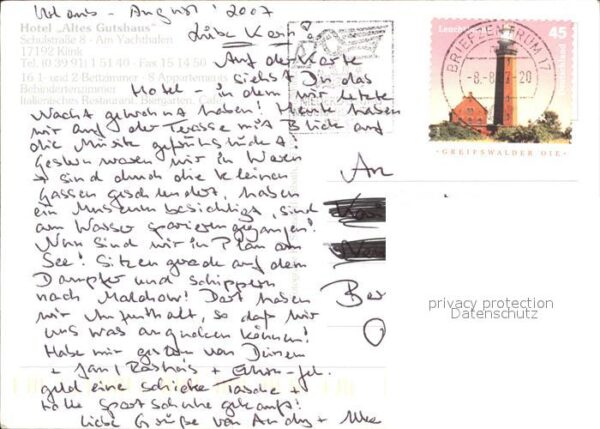 Urlaub - August 2007
Hotel „Altes Gutshaus"
Schulstraße 8 - Am Yachthafen
17192 Klink
Tel. (0 39 91) 1 51 40 - Fax 15 14 50
16 1- und 2 Bettzimmer - 8 Appartements
Behindertenzimmer
Italienisches Restaurant, Biergarten, Café
Liebe Karin!
Auf der Karte
siehst Du das
Hotel - in dem wir letzte
Nacht gewohnt haben! Heute haben
wir auf der Terasse mit Blick auf
die Müritz gefrühstückt!
Gestern waren wir in Waren
+ sind durch die kleinen
Gassen geschlendert, haben
ein Museum besichtigt, sind
am Wasser spazierengegangen!
Nun sind wir in Plau am
See! Sitzen gerade auf dem
Dampfer und schippern
nach Malchow! Dort haben
wir Aufenthalt, so daß wir
uns was angucken können!
Habe mir gestern von Deinem
+
geld eine schicke Tasche +
tolle Sportschuhe gekauft!
Liebe Grüße von Andy +
An
Ber
O
BRIEFZENTRUM 17
-8.-8.07-20
Leuch
45
GREIFSWALDER OIE
privacy protection
Datenschutz